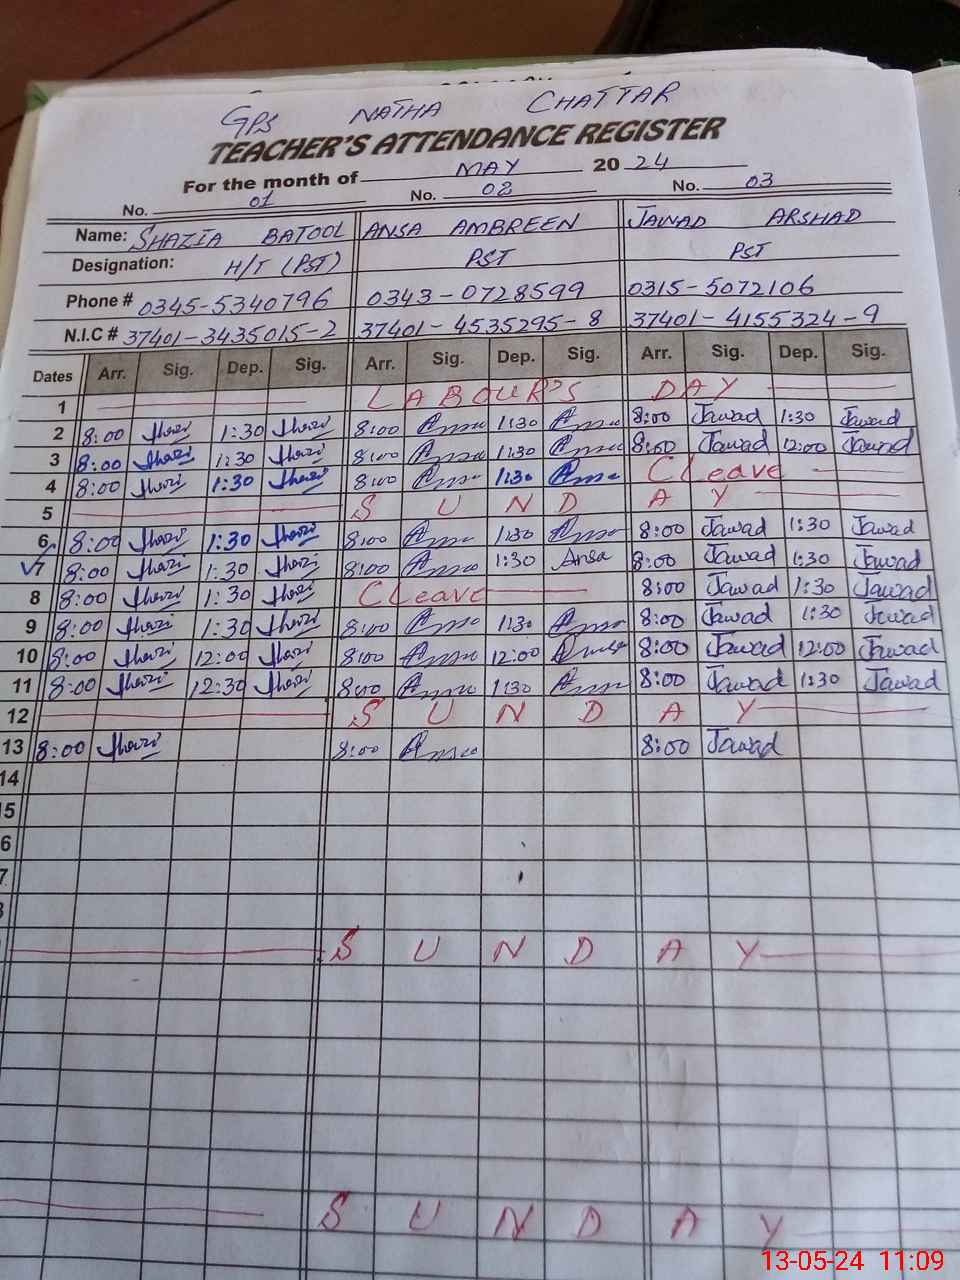 GPS NATHA CHATTAR
TEACHER'S ATTENDANCE REGISTER
For the month of MAY 2024
No. 01 No. 02 No. 03
Name: SHAZIA BATOOL ANSA AMBREEN JAWAD ARSHAD
Designation: H/T (PST) PST PST
Phone # 0345-5340796 0343-0728599 0315-5072106
N.I.C # 37401-3435015-2 37401-4535295-8 37401-4155324-9
Dates Arr. Sig. Dep. Sig. Arr. Sig. Dep. Sig. Arr. Sig. Dep. Sig.
1 LABOUR'S DAY
2 8:00 1:30 8:00 1:30 8:00 Jawad 1:30 Jawad
3 8:00 1:30 8:00 1:30 8:00 Jawad 12:00 Jawad
4 8:00 1:30 8:00 1:30 CLeave
5 SUNDAY
6 8:00 1:30 8:00 1:30 8:00 Jawad 1:30 Jawad
7 8:00 1:30 8:00 1:30 Ansa 8:00 Jawad 1:30 Jawad
8 8:00 1:30 CLeave 8:00 Jawad 1:30 Jawad
9 8:00 1:30 8:00 1:30 8:00 Jawad 1:30 Jawad
10 8:00 12:00 8:00 12:00 8:00 Jawad 12:00 Jawad
11 8:00 12:30 8:00 1:30 8:00 Jawad 1:30 Jawad
12 SUNDAY
13 8:00 8:00 8:00 Jawad
14
15
6
7
SUNDAY
SUNDAY
13-05-24 11:09